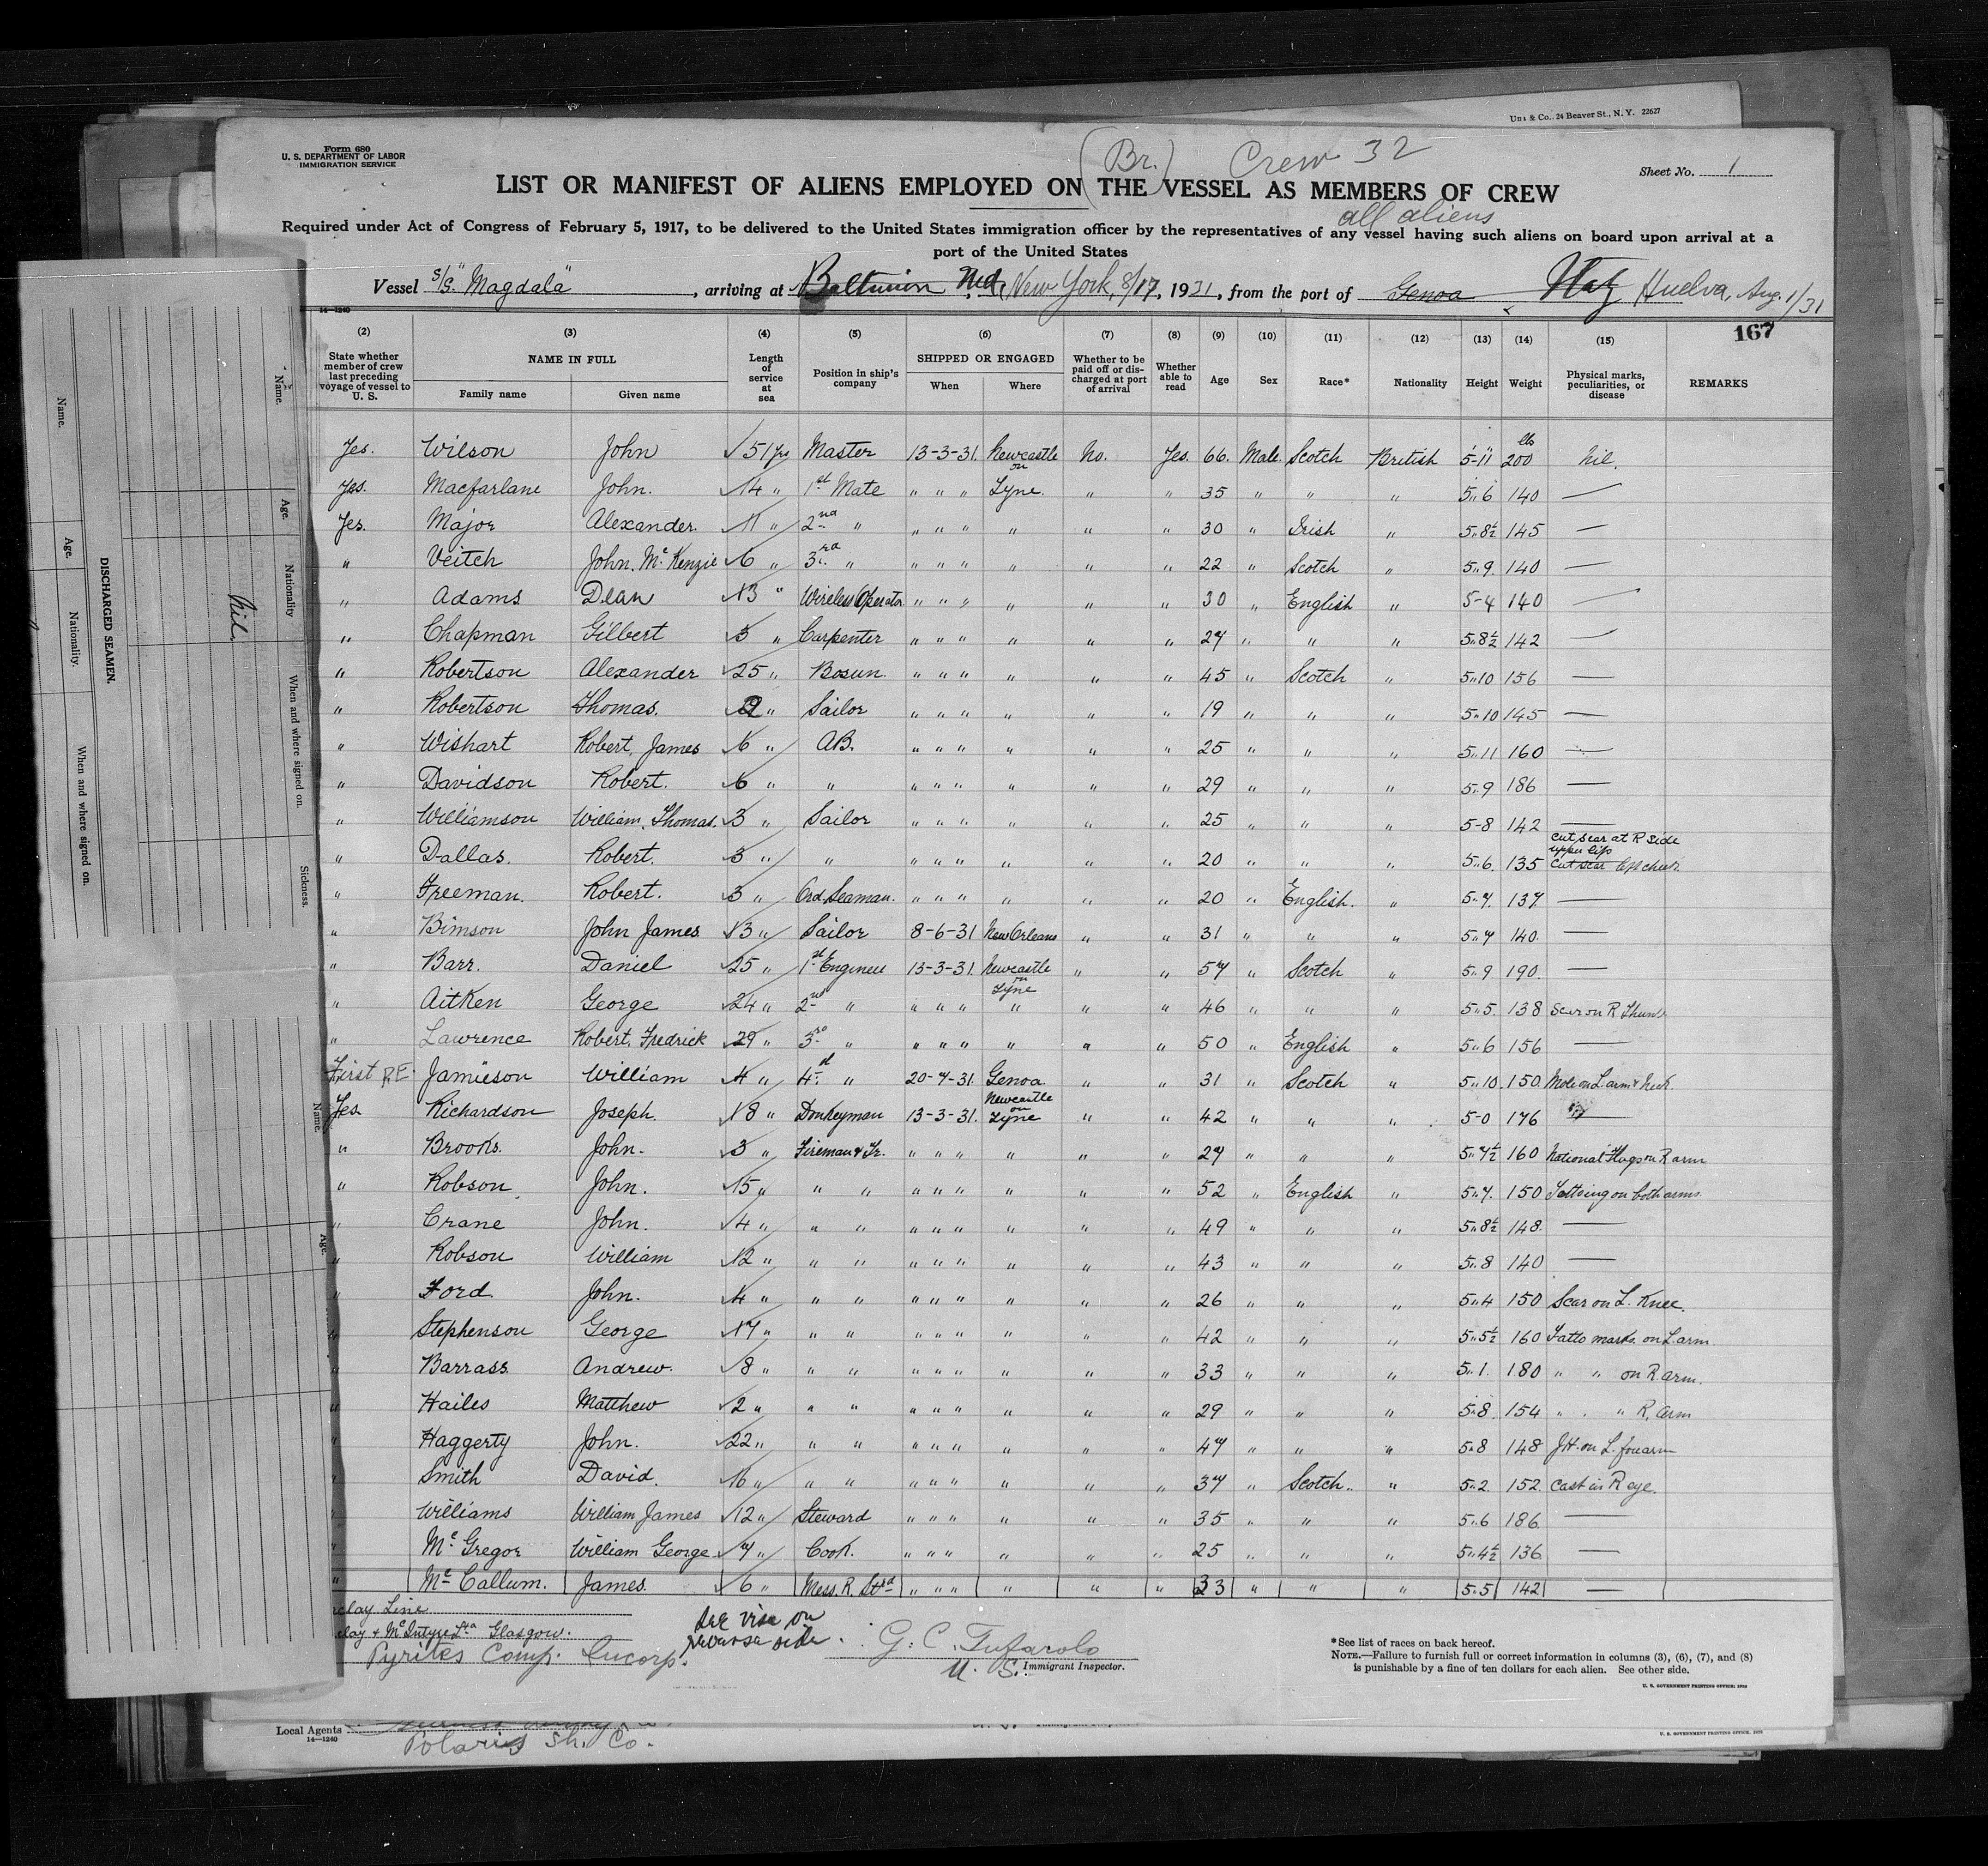 Uns & Co., 24 Beaver St., N. Y. 22627
Form 680
U. S. DEPARTMENT OF LABOR
IMMIGRATION SERVICE
(Br.) Crew 32
Sheet No. 1
LIST OR MANIFEST OF ALIENS EMPLOYED ON THE VESSEL AS MEMBERS OF CREW
all aliens
Required under Act of Congress of February 5, 1917, to be delivered to the United States immigration officer by the representatives of any vessel having such aliens on board upon arrival at a
port of the United States
Vessel S/S. "Magdala", arriving at New York, 8/17, 1931, from the port of Genoa Huelva, Aug. 1/31
14—1240
167
(2) (3) (4) (5) (6) (7) (8) (9) (10) (11) (12) (13) (14) (15)
State whether member of crew last preceding voyage of vessel to U. S. | NAME IN FULL Family name Given name | Length of service at sea | Position in ship's company | SHIPPED OR ENGAGED When Where | Whether to be paid off or discharged at port of arrival | Whether able to read | Age | Sex | Race* | Nationality | Height | Weight | Physical marks, peculiarities, or disease | REMARKS
Yes. Wilson John 51 yrs Master 13-3-31. Newcastle on No. Yes. 66. Male. Scotch British 5-11 200 lbs Nil.
Yes. Macfarlane John. 14 " 1st Mate " " " Tyne. " " 35 " " " 5"6 140 —
Yes. Major Alexander. 11 " 2nd " " " " " " " 30 " Irish " 5"8½ 145 —
" Veitch John. Mc Kenzie 6 " 3rd " " " " " " " 22 " Scotch " 5"9. 140 —
" Adams Dean 13 " Wireless Operator " " " " " " 30 " English " 5-4 140 —
" Chapman Gilbert 5 " Carpenter " " " " " " 27 " " " 5"8½ 142 —
" Robertson Alexander 25 " Bosun. " " " " " " 45 " Scotch " 5"10 156 —
" Robertson Thomas. 2 " Sailor " " " " " " 19 " " " 5"10 145 —
" Wishart Robert. James 6 " AB. " " " " " " 25 " " " 5"11 160 —
" Davidson Robert. 6 " " " " " " " " 29 " " " 5"9 186 —
" Williamson William. Thomas. 3 " Sailor " " " " " " 25 " " " 5-8 142 —
" Dallas. Robert. 3 " " " " " " " " 20 " " " 5"6. 135 Cut scar at R side upper lip
" Freeman. Robert. 3 " Ord. Seaman. " " " " " " 20 " English. " 5"7. 137. —
" Bimson John James. 13 " Sailor 8-6-31 New Orleans " " 31 " " " 5"7 140. —
" Barr. Daniel 25 " 1st Engineer 13-3-31. Newcastle on Tyne " " 57 " Scotch " 5"9 190. —
" Aitken George 24 " 2nd " " " " " " " 46 " " " 5"5. 138 Scar on R Thumb
" Lawrence Robert. Fredrick 29 " 3rd " " " " " " " 50 " English " 5"6 156 —
First P.E. Jamieson William 4 " 4th " 20-7-31. Genoa. " " 31 " Scotch " 5"10. 150. Mole on L. arm & neck.
Yes. Richardson Joseph. 18 " Donkeyman 13-3-31. Newcastle on Tyne " " 42 " " " 5-0 176 —
" Brooks. John. 3 " Fireman & Tr. " " " " " " 27 " " " 5"7½ 160 National Flags on R arm
" Robson John. 15 " " " " " " " " " 52 " English " 5"7. 150 Tattoing on both arms.
" Crane John. 4 " " " " " " " " " 49 " " " 5"8½ 148. —
" Robson William 12 " " " " " " " " " 43 " " " 5"8 140 —
" Ford John. 4 " " " " " " " " " 26 " " " 5"4 150 Scar on L. Knee.
" Stephenson George 17 " " " " " " " " " 42 " " " 5"5½ 160 Tatto marks on L. arm.
" Barrass Andrew. 8 " " " " " " " " " 33 " " " 5"1. 180 " " on R arm.
" Hailes Matthew 2 " " " " " " " " " 29 " " " 5"8 154 " " " R. arm
" Haggerty John. 22 " " " " " " " " " 47 " " " 5"8 148 J.H. on L. forearm
" Smith David. 16 " " " " " " " " " 37 " Scotch. " 5"2. 152. Cast in R eye.
" Williams William James 12 " Steward " " " " " " 35 " " " 5"6 186 —
" Mc Gregor William George 7 " Cook. " " " " " " 25 " " " 5"4½ 136 —
" Mc Callum. James. 6 " Mess. R. Strd " " " " " " 33 " " " 5"5 142 —
clay Line
clay & McIntyre Ltd Glasgow.
Pyrites Comp. Incorp.
See visa on
reverse side.
G. C. Tufarolo
U. S. Immigrant Inspector.
*See list of races on back hereof.
NOTE.—Failure to furnish full or correct information in columns (3), (6), (7), and (8)
is punishable by a fine of ten dollars for each alien. See other side.
U. S. GOVERNMENT PRINTING OFFICE: 1930
Local Agents
14—1240
Polaris Sh. Co.
U. S. GOVERNMENT PRINTING OFFICE
Name.
Age.
Nationality.
When and where signed on.
DISCHARGED SEAMEN.
Name.
Age.
Nationality
When and where signed on.
Sickness.
Nil.
Name.
Age.